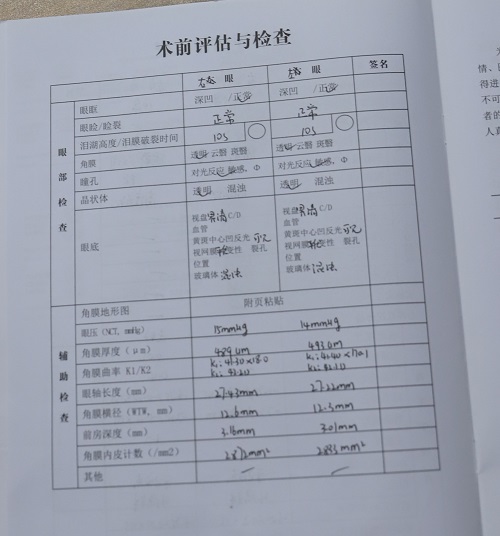 术前评估与检查
右 眼 左 眼 签名
眼眶 深凹 /正常 深凹 /正常
眼睑/睑裂 正常 正常
泪湖高度/泪膜破裂时间 10s 10s
角膜 透明 云翳 斑翳 透明 云翳 斑翳
瞳孔 对光反应 敏感, Φ 对光反应 敏感, Φ
晶状体 透明 混浊 透明 混浊
眼部检查
眼底
视盘界清 C/D 视盘界清 C/D
血管 血管
黄斑中心凹反光 可见 黄斑中心凹反光 可见
视网膜 变性 裂孔 视网膜 变性 裂孔
位置 位置
玻璃体 混浊 玻璃体 混浊
辅助检查
角膜地形图 附页粘贴
眼压(NCT, mmHg) 15mmHg 14mmHg
角膜厚度(μm) 489um 493um
角膜曲率 K1/K2 K1: 41.30 K1: 41.40
K2: 42.10 K2: 42.10
眼轴长度(mm) 27.43mm 27.22mm
角膜横径(WTW, mm) 12.6mm 12.5mm
前房深度(mm) 3.16mm 3.01mm
角膜内皮计数(/mm2) 2872mm² 2883mm²
其他 / /
情、
得进
不可
者的
人真